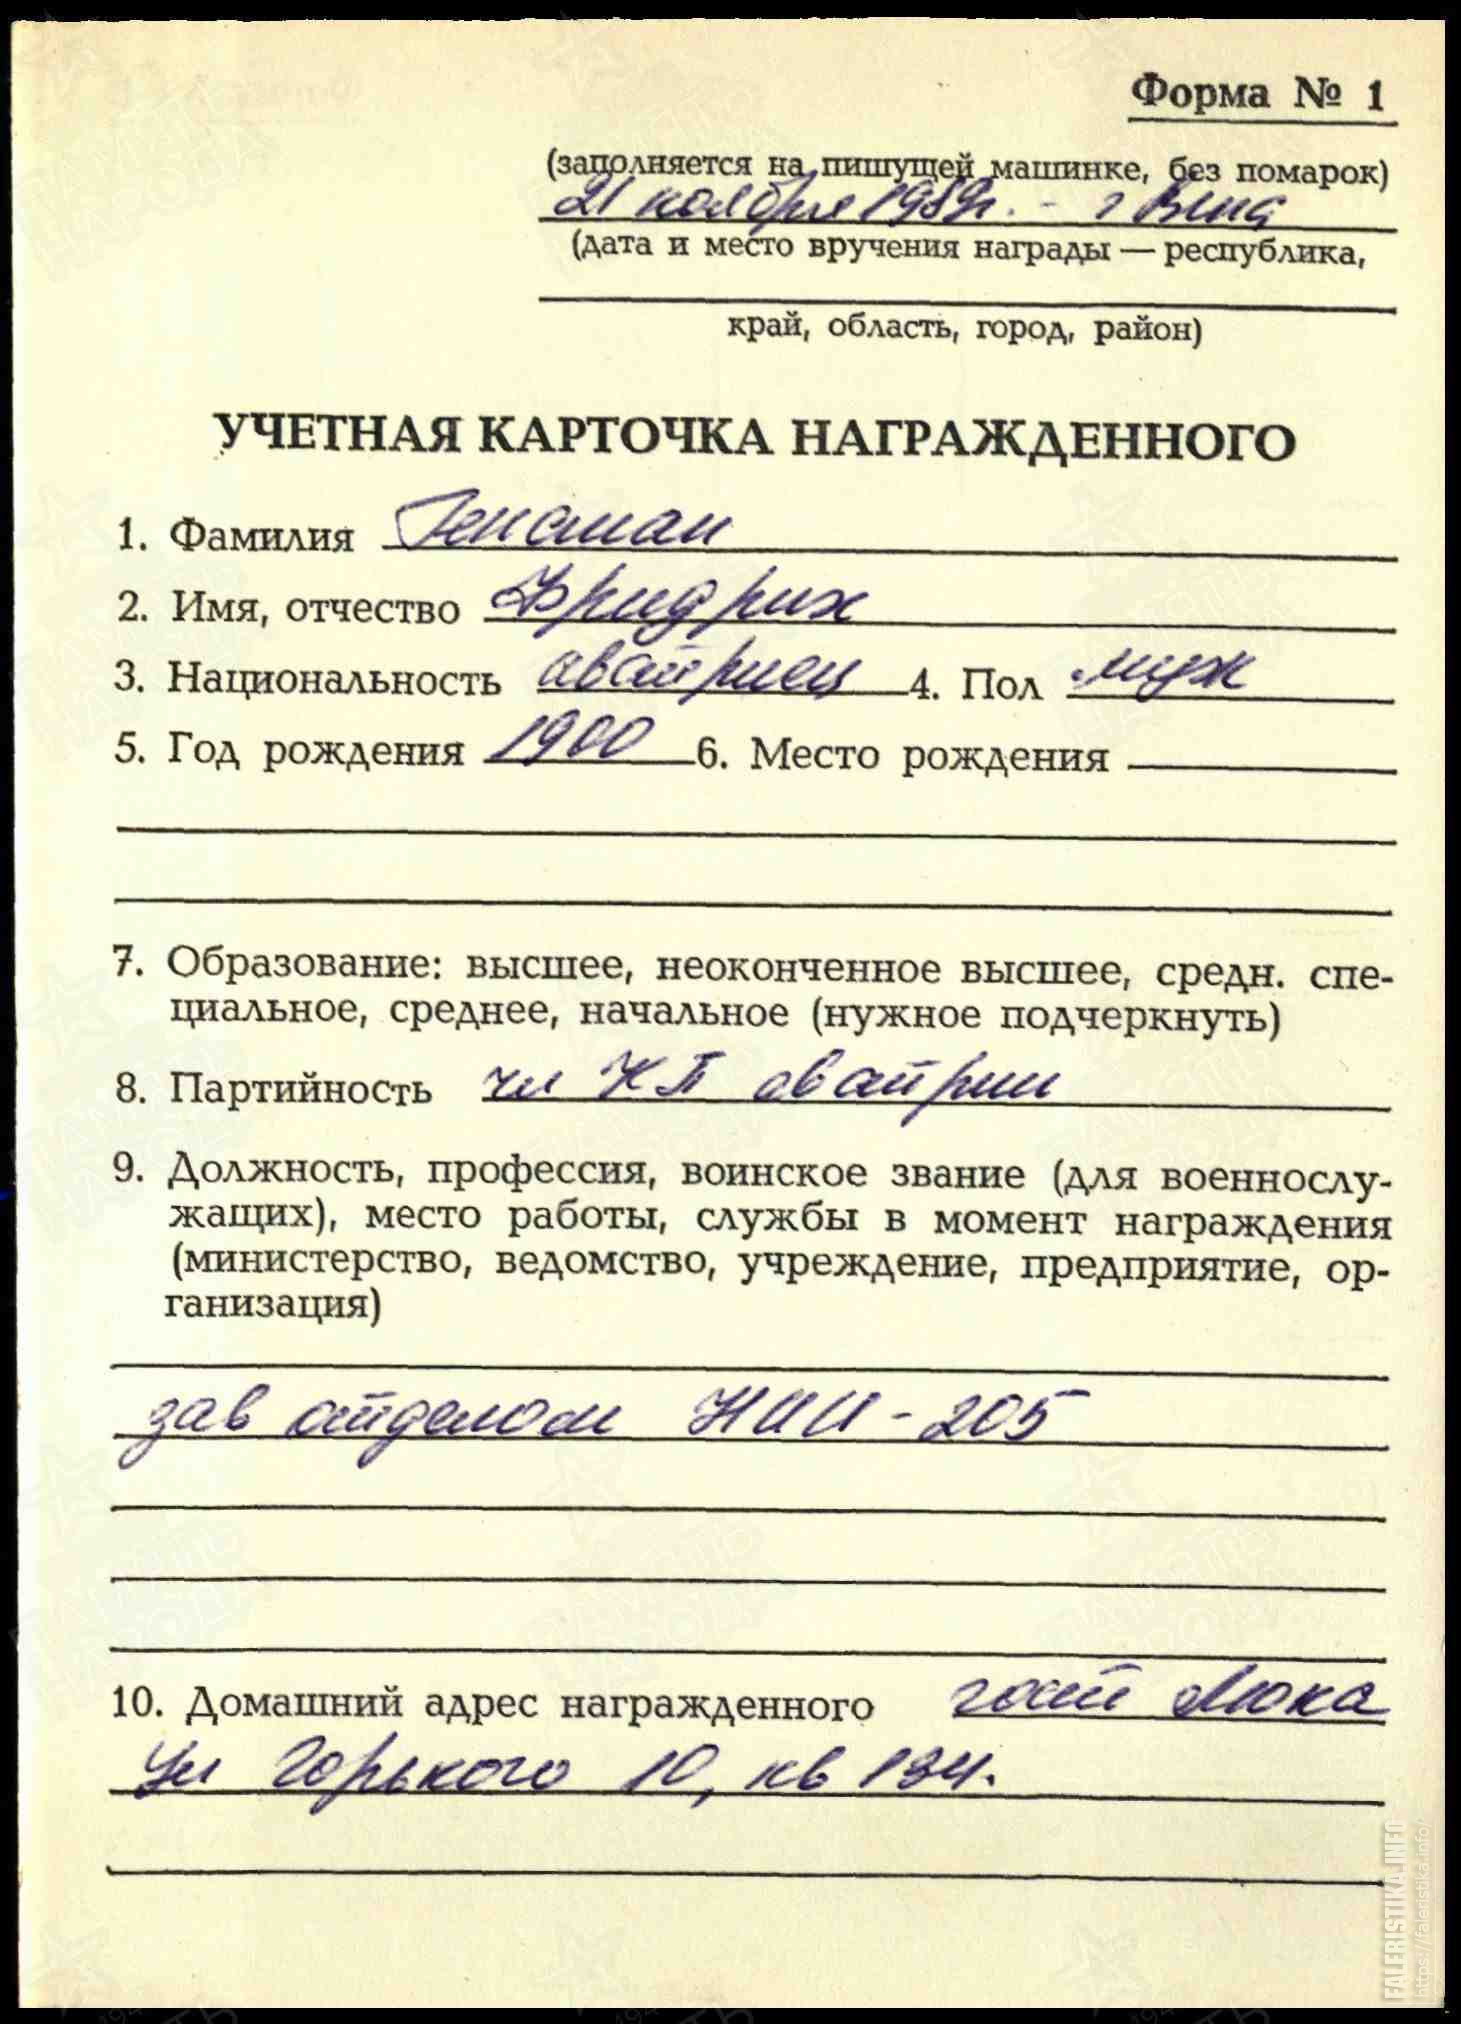 Форма № 1
(заполняется на пишущей машинке, без помарок)
21 ноября 1989г. - г Вена
(дата и место вручения награды — республика,
край, область, город, район)
УЧЕТНАЯ КАРТОЧКА НАГРАЖДЕННОГО
1. Фамилия Гексман
2. Имя, отчество Фридрих
3. Национальность австриец 4. Пол муж
5. Год рождения 1900 6. Место рождения
7. Образование: высшее, неоконченное высшее, средн. спе-
циальное, среднее, начальное (нужное подчеркнуть)
8. Партийность чл КП австрии
9. Должность, профессия, воинское звание (для военнослу-
жащих), место работы, службы в момент награждения
(министерство, ведомство, учреждение, предприятие, ор-
ганизация)
зав отделом НИИ-205
10. Домашний адрес награжденного гост Люкс
ул Горького 10, кв 134.
FALERISTIKA.INFO
https://faleristika.info/